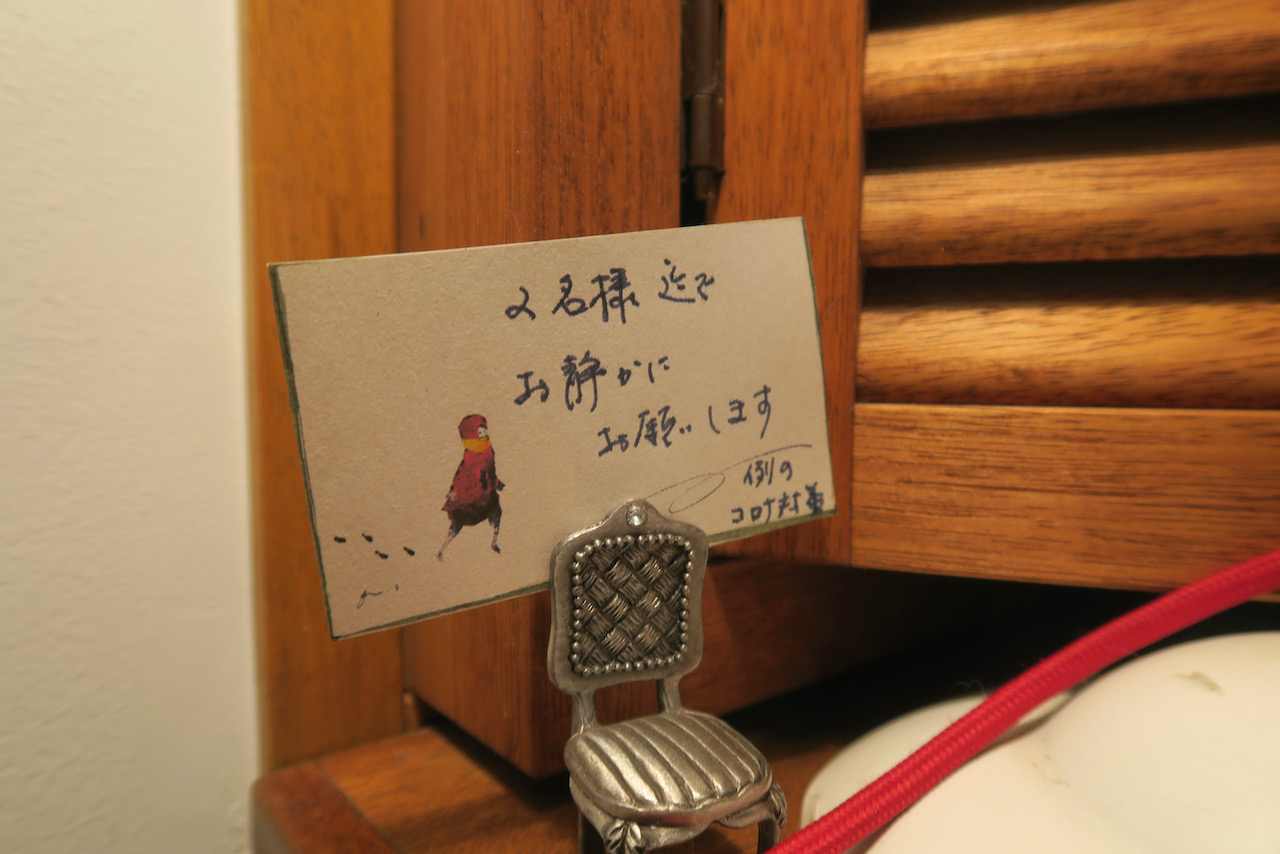 2名様迄で
お静かに
お願いします
例の
コロナ対策